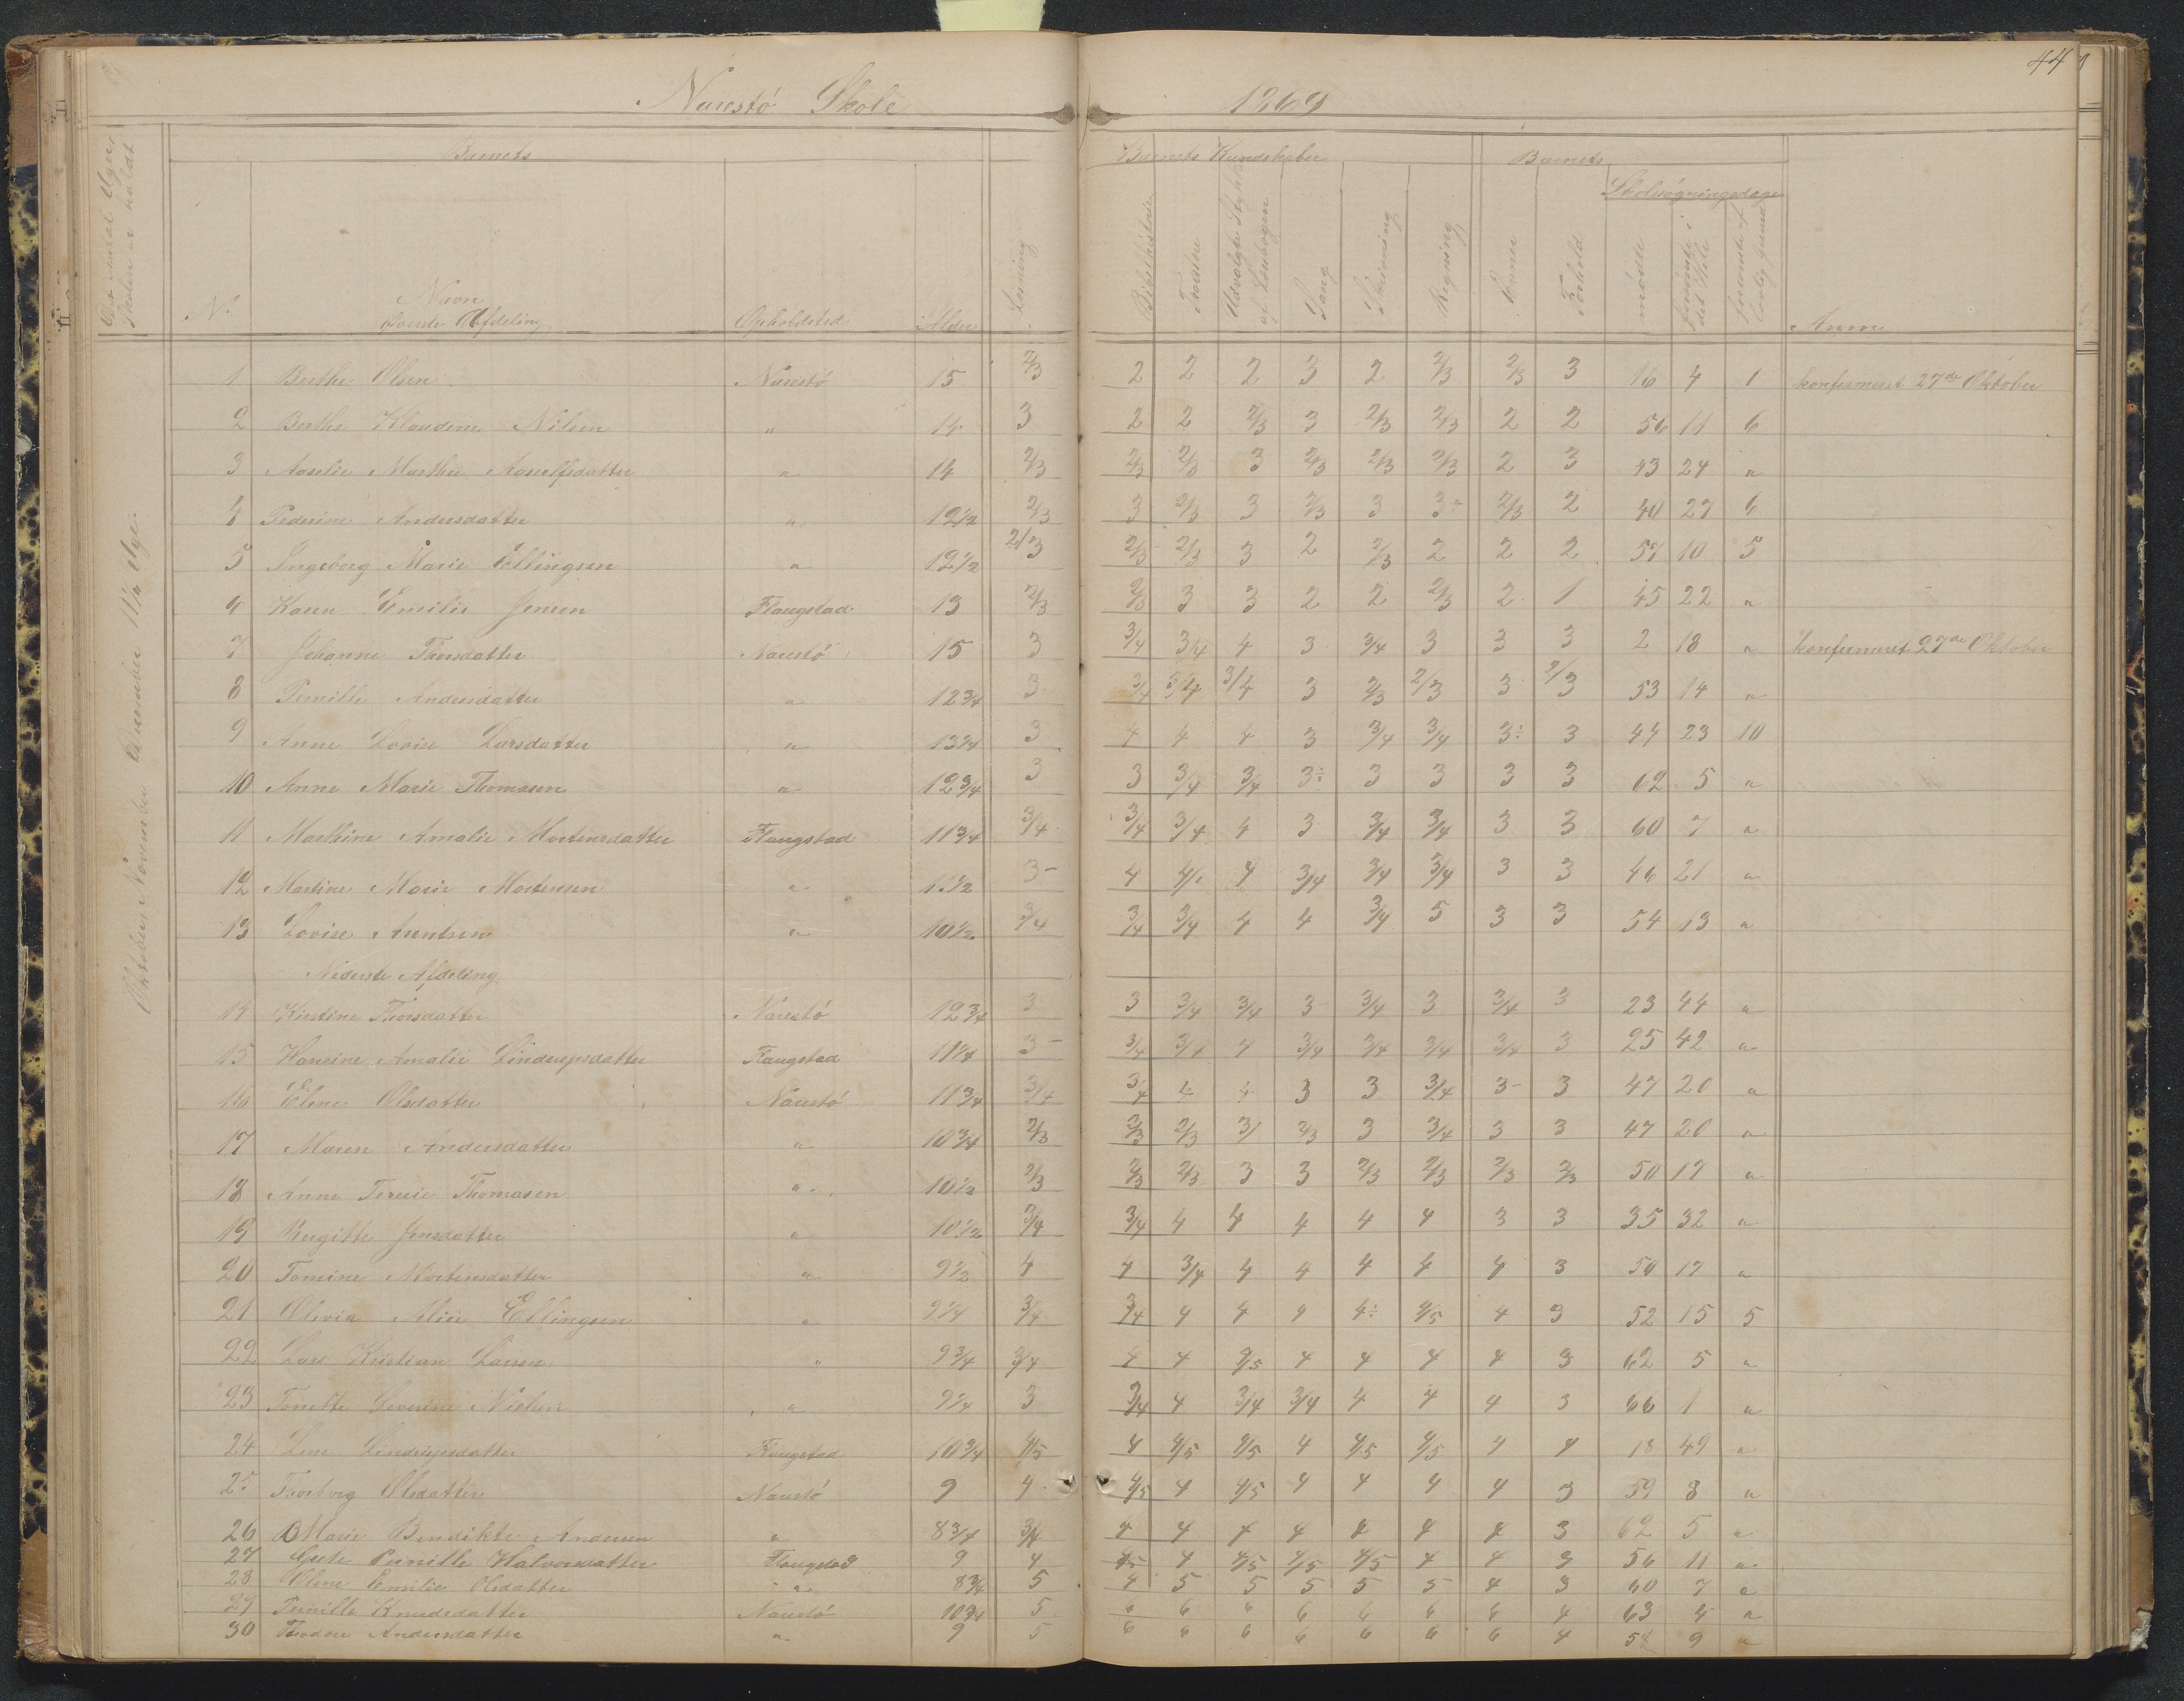 44
Narestö Skole 1869
Det Antal Uger Skolen er holdt
Barnets
Barnets Kundskaber
Barnets
Skolesøgningsdage
No
Navn
Øverste Afdeling
Opholdsted
Alder
Læsning
Bibelhistorie
Troeslære
Udvalgte Stykker af Læsebogen
Sang
Skrivning
Regning
Evner
Forhold
mødte
forsømte i det Hele
forsømte af lovlig Grund
Anm
Oktober, November December 11 1/2 Uge.
1 Berthe Olsen Narestö 15 2/3 2 2 2 3 2 2/3 2/3 3 16 4 1 konfirmeret 27de Oktober
2 Berthe Klaudine Nilsen " 14 3 2 2 2/3 3 2/3 2/3 2 2 56 11 6
3 Aaselie Marthe Aanulfsdatter " 14 2/3 2/3 2/3 3 2/3 2/3 2/3 2 3 43 24 "
4 Pederine Andersdatter " 12 1/2 2/3 3 2/3 3 2/3 3 3÷ 2/3 2 40 27 6
5 Ingeborg Marie Ellingsen " 12 1/2 2/3 2/3 2/3 3 2 2/3 2 2 2 57 10 5
6 Karen Emilie Jensen Flangstad 13 2/3 2/3 3 3 2 2 2/3 2 1 45 22 "
7 Johanne Thorsdatter Narestö 15 3 3/4 3/4 4 3 3/4 3 3 3 2 18 " konfirmeret 27de Oktober
8 Pernille Andersdatter " 12 3/4 3 3/4 3/4 3/4 3 2/3 2/3 3 2/3 53 14 "
9 Anne Lovise Larsdatter " 13 1/4 3 4 4 4 3 3/4 3/4 3÷ 3 44 23 10
10 Anne Marie Thomasen " 12 3/4 3 3 3/4 3/4 3÷ 3 3 3 3 62 5 "
11 Mathine Amalie Mortensdatter Flangstad 11 3/4 3/4 3/4 3/4 4 3 3/4 3/4 3 3 60 7 "
12 Martine Marie Mortensen " 11 1/2 3- 4 4/ 4 3/4 3/4 3/4 3 3 46 21 "
13 Lovise Arentsen " 10 1/2 3/4 3/4 3/4 4 4 3/4 5 3 3 54 13 "
Nederste Afdeling
14 Kirstine Thorsdatter Narestö 12 3/4 3 3 3/4 3/4 3 3/4 3 3/4 3 23 44 "
15 Hansine Amalie Linderupsdatter Flangstad 11 1/4 3- 3/4 3/4 4 3/4 3/4 3/4 3/4 3 25 42 "
16 Elene Olsdatter Narestö 11 3/4 3/4 3/4 4 4 3 3 3/4 3- 3 47 20 "
17 Maren Andersdatter " 10 3/4 2/3 2/3 2/3 3/ 2/3 3 3/4 3 3 47 20 "
18 Anne Terese Thomasen " 10 1/2 2/3 2/3 2/3 3 3 2/3 2/3 2/3 2/3 50 17 "
19 Birgitte Jensdatter " 10 1/2 3/4 3/4 4 4 4 4 4 3 3 35 32 "
20 Tomine Mortensdatter " 9 1/2 4 4 3/4 4 4 4 4 4 3 50 17 "
21 Olivia Alise Ellingsen " 9 1/4 3/4 3/4 4 4 4 4÷ 4/5 4 3 52 15 5
22 Lars Kristian Larsen " 9 3/4 3/4 4 4 4/5 4 4 4 4 3 62 5 "
23 Tonette Severine Nielsen " 9 1/4 3 3/4 4 3/4 3/4 4 4 4 3 66 1 "
24 Lene Linderupsdatter Flangstad 10 3/4 4/5 4 4/5 4/5 4 4/5 4/5 4 4 18 49 "
25 Thorborg Olsdatter Narestö 9 4 4/5 4 4/5 4 4 4 4 3 59 8 "
26 Marie Bendikte Andersen " 8 3/4 3/4 4 4 4 4 4 4 4 3 62 5 "
27 Gute Pernille Halvorsdatter Flangstad 9 4 4/5 4 4/5 4/5 4/5 4 4 3 56 11 "
28 Oline Emilie Olsdatter " 8 3/4 5 4 5 5 5 5 5 4 3 60 7 "
29 Pernille Knudsdatter Narestö 10 3/4 5 6 6 6 6 6 6 6 4 63 4 "
30 Theodore Andersdatter " 9 5 6 6 6 6 6 6 6 4 58 9 "